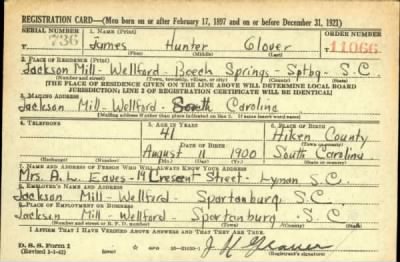 REGISTRATION CARD—(Men born on or after February 17, 1897 and on or before December 31, 1921)
SERIAL NUMBER 1. NAME (Print) ORDER NUMBER
T 736 James Hunter Glover 11066
(First) (Middle) (Last)
2. PLACE OF RESIDENCE (Print)
Jackson Mill - Wellford - Beech Springs Sptbg - S.C.
(Number and street) (Town, township, village, or city) (County) (State)
[THE PLACE OF RESIDENCE GIVEN ON THE LINE ABOVE WILL DETERMINE LOCAL BOARD
JURISDICTION; LINE 2 OF REGISTRATION CERTIFICATE WILL BE IDENTICAL]
3. MAILING ADDRESS
Jackson Mill - Wellford - South Carolina
(Mailing address if other than place indicated on line 2. If same insert word same)
4. TELEPHONE 5. AGE IN YEARS 6. PLACE OF BIRTH
41 Aiken County
DATE OF BIRTH (Town or county)
August 11 1900 South Carolina
(Exchange) (Number) (Mo.) (Day) (Yr.) (State or country)
7. NAME AND ADDRESS OF PERSON WHO WILL ALWAYS KNOW YOUR ADDRESS
Mrs. A. L. Eaves - Crescent Street - Lyman S.C.
8. EMPLOYER'S NAME AND ADDRESS
Jackson Mill - Wellford - Spartanburg, S.C.
9. PLACE OF EMPLOYMENT OR BUSINESS
Jackson Mill - Wellford - Spartanburg - S.C.
(Number and street or R. F. D. number) (Town) (County) (State)
I AFFIRM THAT I HAVE VERIFIED ABOVE ANSWERS AND THAT THEY ARE TRUE.
D. S. S. Form 1
(Revised 1-1-42)
(Registrant's signature)